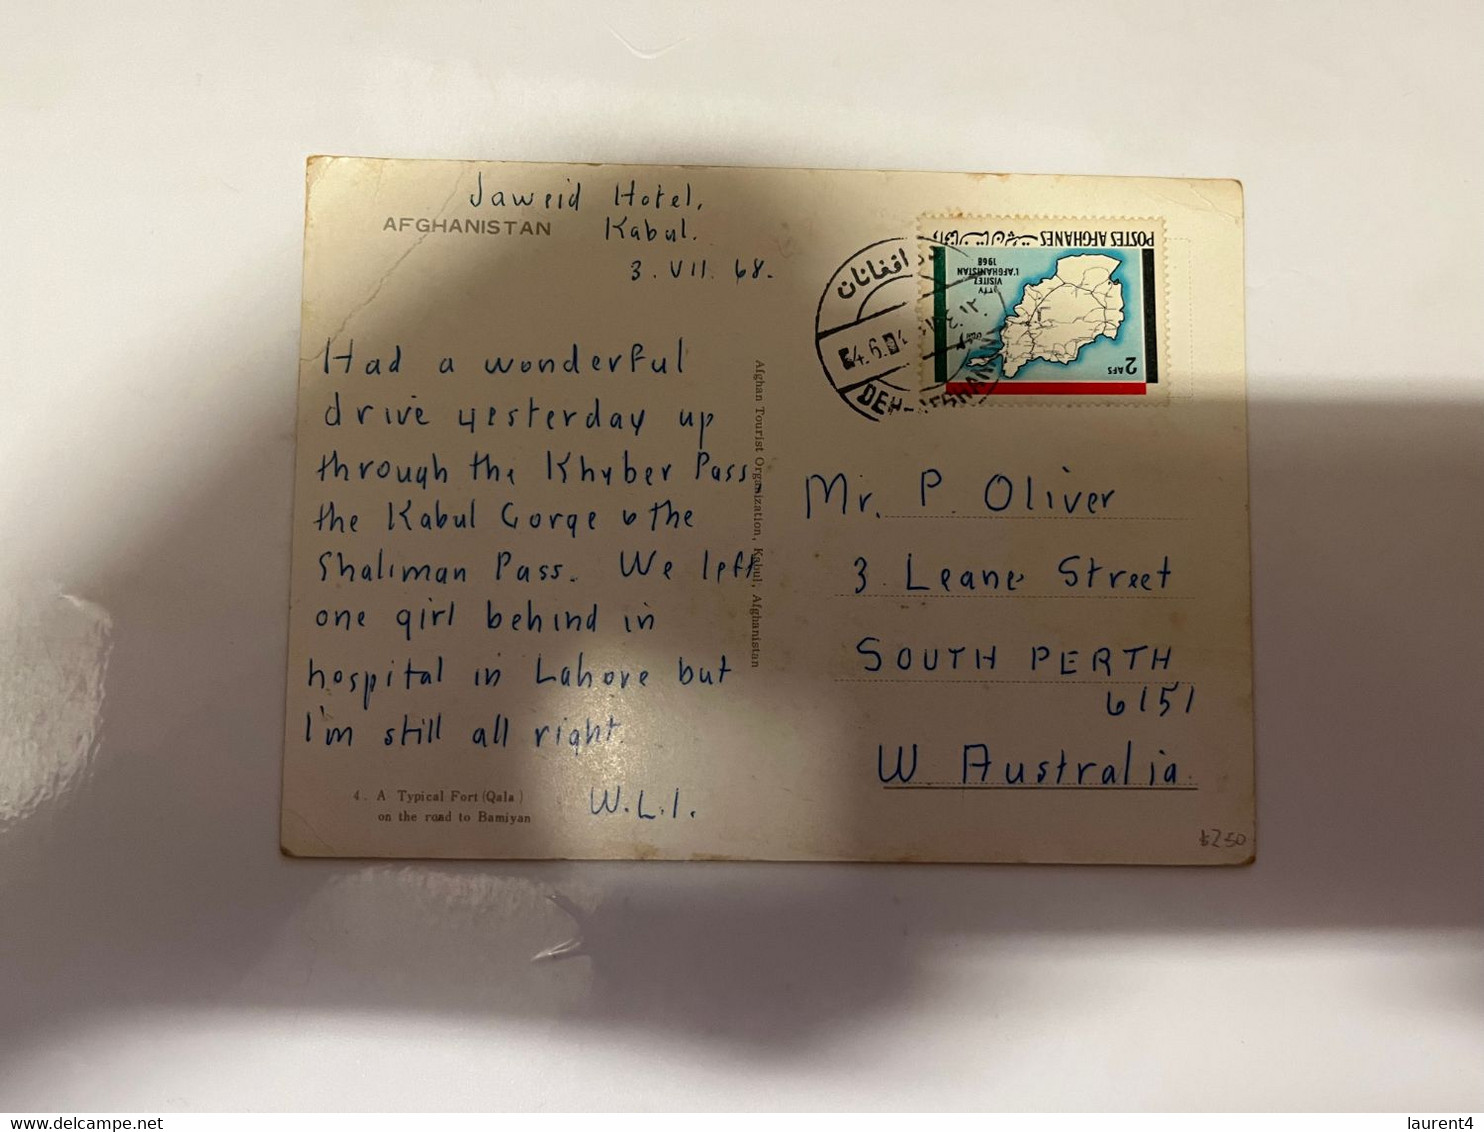 Jaweid Hotel,
AFGHANISTAN
Kabul.
3. VII. 68.
Had a wonderful
drive yesterday up
through the Khyber Pass,
the Kabul Gorge & the
Shaliman Pass. We left
one girl behind in
hospital in Lahore but
I'm still all right.
W.L.I.
4. A Typical Fort (Qala)
on the road to Bamiyan
Afghan Tourist Organization, Kabul, Afghanistan
POSTES AFGHANES
VISITEZ
L'AFGHANISTAN
1968
١٣٤٧
2 AFS
افغانان
DEH-AFGHANAN
Mr. P. Oliver
3 Leane Street
SOUTH PERTH
6151
W Australia.
$250
laurent4